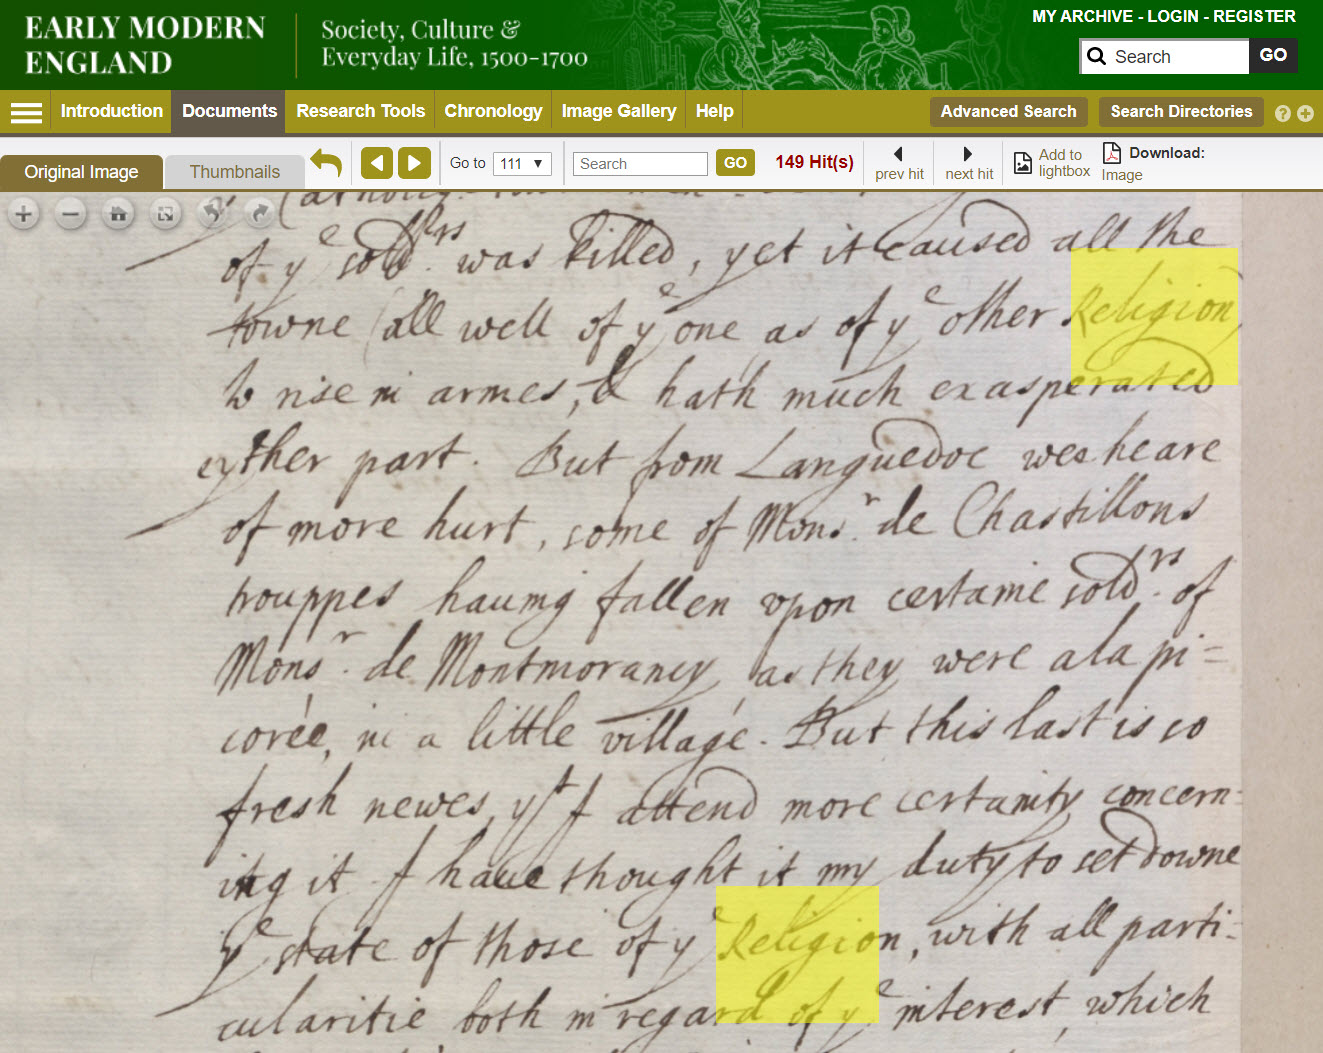 EARLY MODERN
ENGLAND
Society, Culture &
Everyday Life, 1500-1700
MY ARCHIVE - LOGIN - REGISTER
Search
GO
Introduction
Documents
Research Tools
Chronology
Image Gallery
Help
Advanced Search
Search Directories
Original Image
Thumbnails
Go to
111
Search
GO
149 Hit(s)
prev hit
next hit
Add to
lightbox
Download:
Image
of yᵉ soldʳˢ was killed, yet it caused all the
towne (all well of yᵉ one as of yᵉ other Religion)
to rise in armes, & hath much exasperated
eyther part. But from Languedoc wee heare
of more hurt, some of Monsʳ. de Chastillons
trouppes hauing fallen vpon certaine soldʳˢ. of
Monsʳ. de Montmorancy, as they were a la pi=
corée, in a little village. But this last is so
fresh newes, yᵗ I attend more certainty concern=
ing it. I haue thought it my duty to set downe
yᵉ state of those of yᵉ Religion, with all parti=
cularitie both in regard of yᵉ interest, which